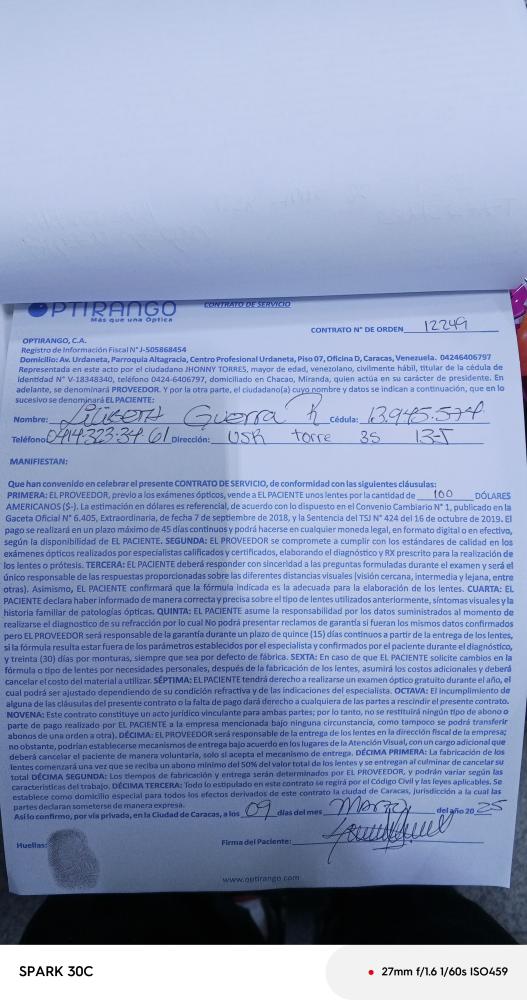 OPTIRANGO
Más que una Óptica
CONTRATO DE SERVICIO
CONTRATO N° DE ORDEN 12249
OPTIRANGO, C.A.
Registro de Información Fiscal N° J-505868454
Domicilio: Av. Urdaneta, Parroquia Altagracia, Centro Profesional Urdaneta, Piso 07, Oficina D, Caracas, Venezuela. 04246406797
Representada en este acto por el ciudadano JHONNY TORRES, mayor de edad, venezolano, civilmente hábil, titular de la cédula de
identidad N° V-18348340, teléfono 0424-6406797, domiciliado en Chacao, Miranda, quien actúa en su carácter de presidente. En
adelante, se denominará PROVEEDOR. Y por la otra parte, el ciudadano(a) cuyo nombre y datos se indican a continuación, que en lo
sucesivo se denominará EL PACIENTE:
Nombre: Guerra R Cédula: 13.945.574
Teléfono: 0414-323-34 61 Dirección: USR torre 3s 13-T
MANIFIESTAN:
Que han convenido en celebrar el presente CONTRATO DE SERVICIO, de conformidad con las siguientes cláusulas:
PRIMERA: EL PROVEEDOR, previo a los exámenes ópticos, vende a EL PACIENTE unos lentes por la cantidad de 100 DÓLARES
AMERICANOS ($-). La estimación en dólares es referencial, de acuerdo con lo dispuesto en el Convenio Cambiario N° 1, publicado en la
Gaceta Oficial N° 6.405, Extraordinaria, de fecha 7 de septiembre de 2018, y la Sentencia del TSJ N° 424 del 16 de octubre de 2019. El
pago se realizará en un plazo máximo de 45 días continuos y podrá hacerse en cualquier moneda legal, en formato digital o en efectivo,
según la disponibilidad de EL PACIENTE. SEGUNDA: EL PROVEEDOR se compromete a cumplir con los estándares de calidad en los
exámenes ópticos realizados por especialistas calificados y certificados, elaborando el diagnóstico y RX prescrito para la realización de
los lentes o prótesis. TERCERA: EL PACIENTE deberá responder con sinceridad a las preguntas formuladas durante el examen y será el
único responsable de las respuestas proporcionadas sobre las diferentes distancias visuales (visión cercana, intermedia y lejana, entre
otras). Asimismo, EL PACIENTE confirmará que la fórmula indicada es la adecuada para la elaboración de los lentes. CUARTA: EL
PACIENTE declara haber informado de manera correcta y precisa sobre el tipo de lentes utilizados anteriormente, síntomas visuales y la
historia familiar de patologías ópticas. QUINTA: EL PACIENTE asume la responsabilidad por los datos suministrados al momento de
realizarse el diagnostico de su refracción por lo cual No podrá presentar reclamos de garantía si fueran los mismos datos confirmados
pero EL PROVEEDOR será responsable de la garantía durante un plazo de quince (15) días continuos a partir de la entrega de los lentes,
si la fórmula resulta estar fuera de los parámetros establecidos por el especialista y confirmados por el paciente durante el diagnóstico,
y treinta (30) días por monturas, siempre que sea por defecto de fábrica. SEXTA: En caso de que EL PACIENTE solicite cambios en la
fórmula o tipo de lentes por necesidades personales, después de la fabricación de los lentes, asumirá los costos adicionales y deberá
cancelar el costo del material a utilizar. SÉPTIMA: EL PACIENTE tendrá derecho a realizarse un examen óptico gratuito durante el año, el
cual podrá ser ajustado dependiendo de su condición refractiva y de las indicaciones del especialista. OCTAVA: El incumplimiento de
alguna de las cláusulas del presente contrato o la falta de pago dará derecho a cualquiera de las partes a rescindir el presente contrato.
NOVENA: Este contrato constituye un acto jurídico vinculante para ambas partes; por lo tanto, no se restituirá ningún tipo de abono o
parte de pago realizado por EL PACIENTE a la empresa mencionada bajo ninguna circunstancia, como tampoco se podrá transferir
abonos de una orden a otra). DÉCIMA: EL PROVEEDOR será responsable de la entrega de los lentes en la dirección fiscal de la empresa;
no obstante, podrían establecerse mecanismos de entrega bajo acuerdo en los lugares de la Atención Visual, con un cargo adicional que
deberá cancelar el paciente de manera voluntaria, solo si acepta el mecanismo de entrega. DÉCIMA PRIMERA: La fabricación de los
lentes comenzará una vez que se reciba un abono mínimo del 50% del valor total de los lentes y se entregan al culminar de cancelar su
total DÉCIMA SEGUNDA: Los tiempos de fabricación y entrega serán determinados por EL PROVEEDOR, y podrán variar según las
características del trabajo. DÉCIMA TERCERA: Todo lo estipulado en este contrato se regirá por el Código Civil y las leyes aplicables. Se
establece como domicilio especial para todos los efectos derivados de este contrato la ciudad de Caracas, jurisdicción a la cual las
partes declaran someterse de manera expresa.
Así lo confirmo, por vía privada, en la Ciudad de Caracas, a los 09 días del mes Marzo del año 20 25
Huellas:
Firma del Paciente:
www.optirango.com
SPARK 30C
27mm f/1.6 1/60s ISO459